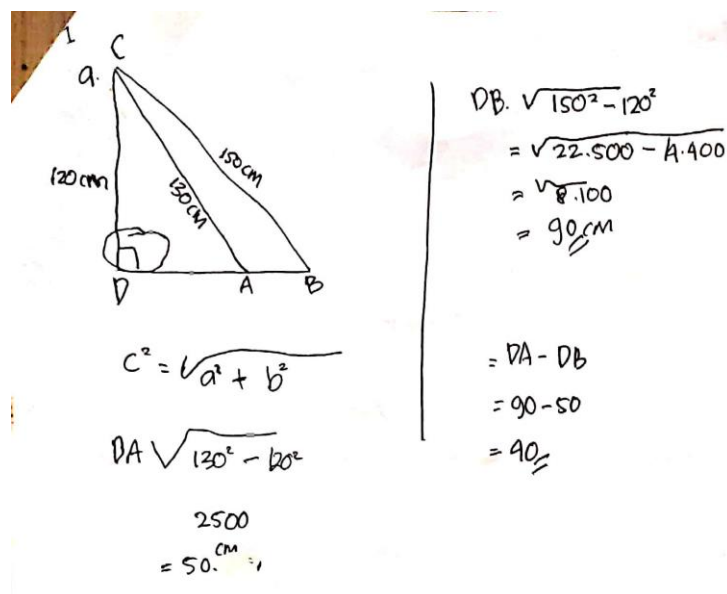 1
a.
C
120 cm
130 cm
150 cm
D A B
C² = √a² + b²
DA √130² - 120²
2500
= 50. cm
DB. √150² - 120²
= √22.500 - 14.400
= √8.100
= 90 cm
= DA - DB
= 90 - 50
= 40